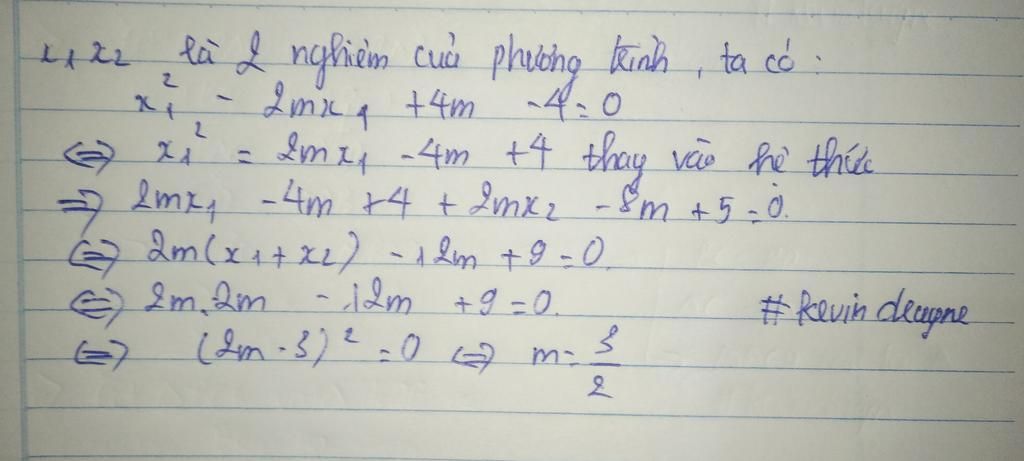 x₁ x₂ là 2 nghiệm của phương trình, ta có:
x₁² - 2mx₁ + 4m - 4 = 0
⇔ x₁² = 2mx₁ - 4m + 4 thay vào hệ thức
⇒ 2mx₁ - 4m + 4 + 2mx₂ - 8m + 5 = 0.
⇔ 2m(x₁ + x₂) - 12m + 9 = 0
⇔ 2m.2m - 12m + 9 = 0.
# kevin decayne
⇔ (2m - 3)² = 0 ⇔ m = 3/2